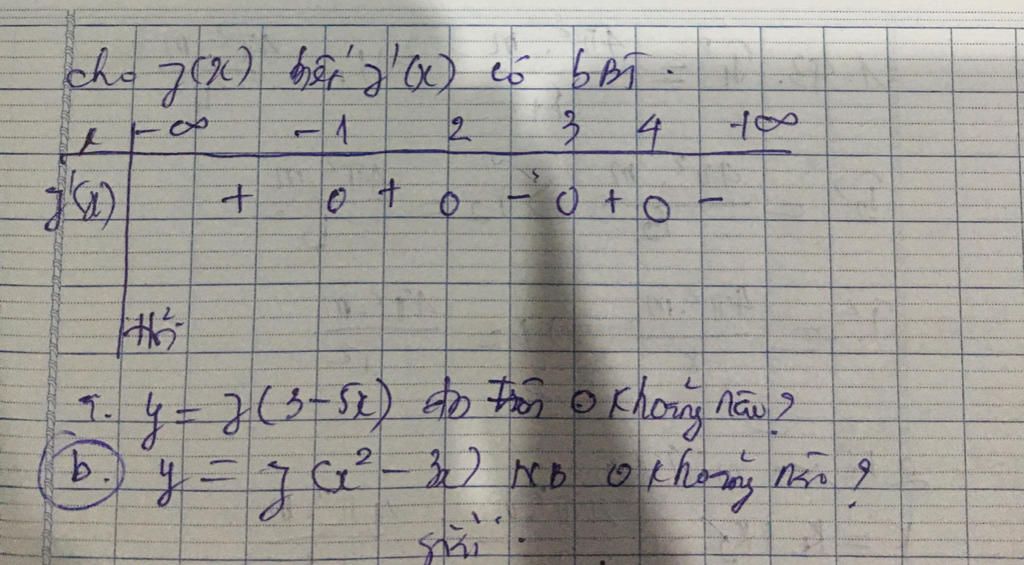 cho f(x) biết f'(x) có bBT.
x -∞ -1 2 3 4 +∞
f'(x) + 0 + 0 - 0 + 0 -
a. y = f(3-5x) ở khoảng nào?
b. y = f(x² - 3x) NB ở khoảng nào?
giải: